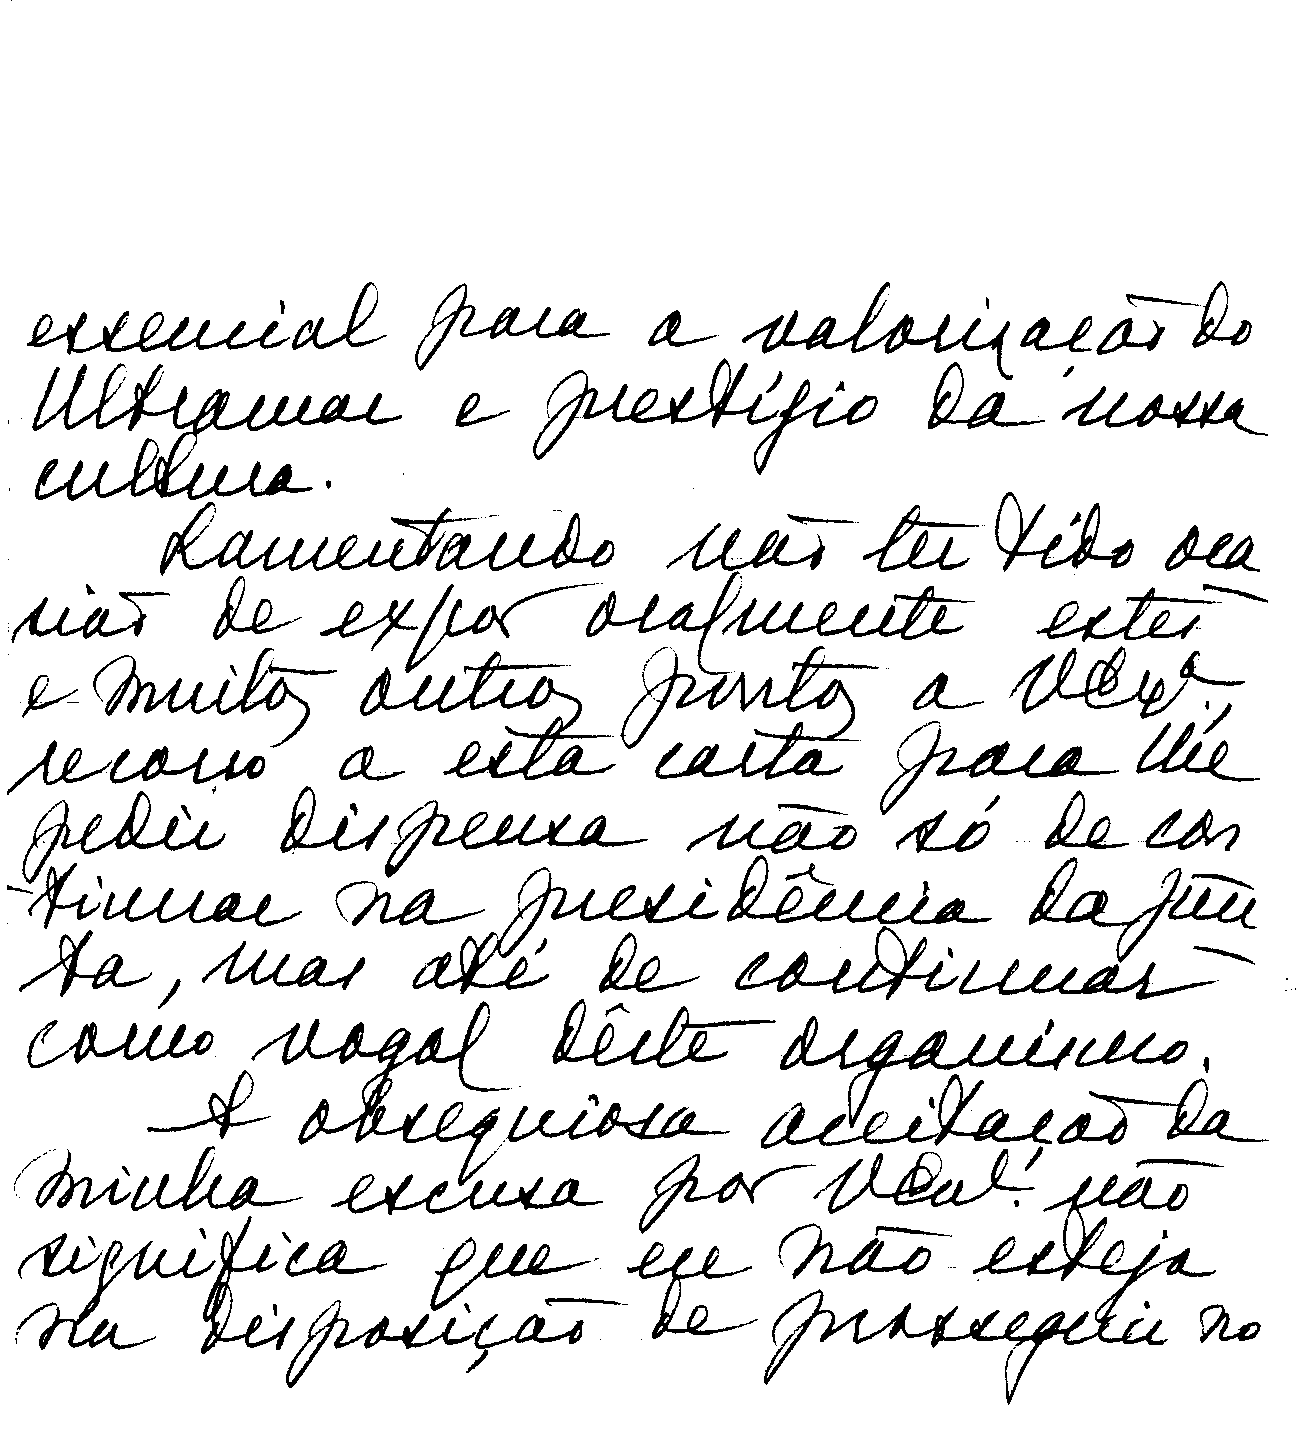 essencial para a valorização do
Ultramar e prestígio da nossa
cultura.
Lamentando não ter tido oca
sião de expor oralmente estes
e muitos outros pontos a V Exª.
recorro a esta carta para lhe
pedir dispensa não só de con
tinuar na presidência da Jun
ta, mas até de continuar
como vogal dêste organismo.
A obsequiosa aceitação da
minha escusa por V Exª. não
significa que eu não esteja
na disposição de prosseguir no